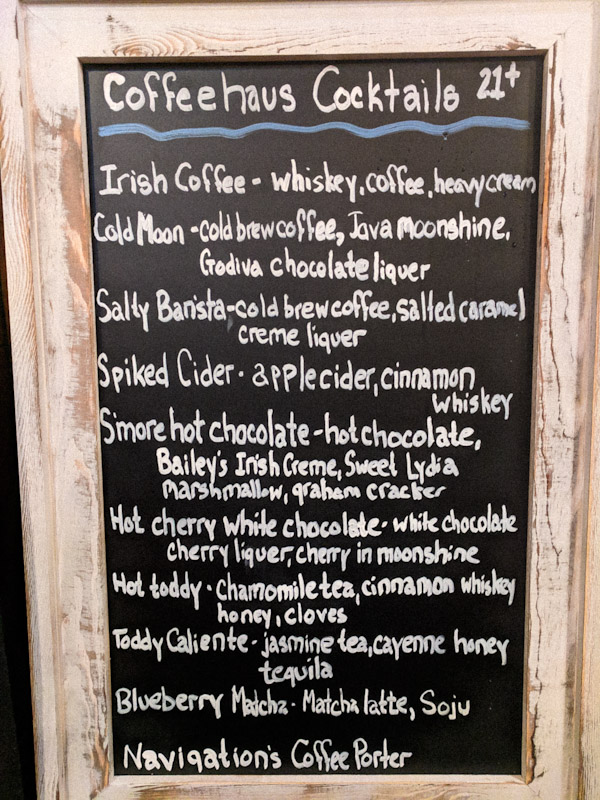 Coffeehaus Cocktails 21+
Irish Coffee - whiskey, coffee, heavy cream
Cold Moon - cold brew coffee, Java moonshine,
Godiva chocolate liquer
Salty Barista - cold brew coffee, salted caramel
creme liquer
Spiked Cider - apple cider, cinnamon
whiskey
S'more hot chocolate - hot chocolate,
Bailey's Irish Creme, Sweet Lydia
marshmallow, graham cracker
Hot cherry white chocolate - white chocolate
cherry liquer, cherry in moonshine
Hot toddy - Chamomile tea, cinnamon whiskey
honey, cloves
Toddy Caliente - jasmine tea, cayenne honey
tequila
Blueberry Matcha - Matcha latte, Soju
Navigation's Coffee Porter